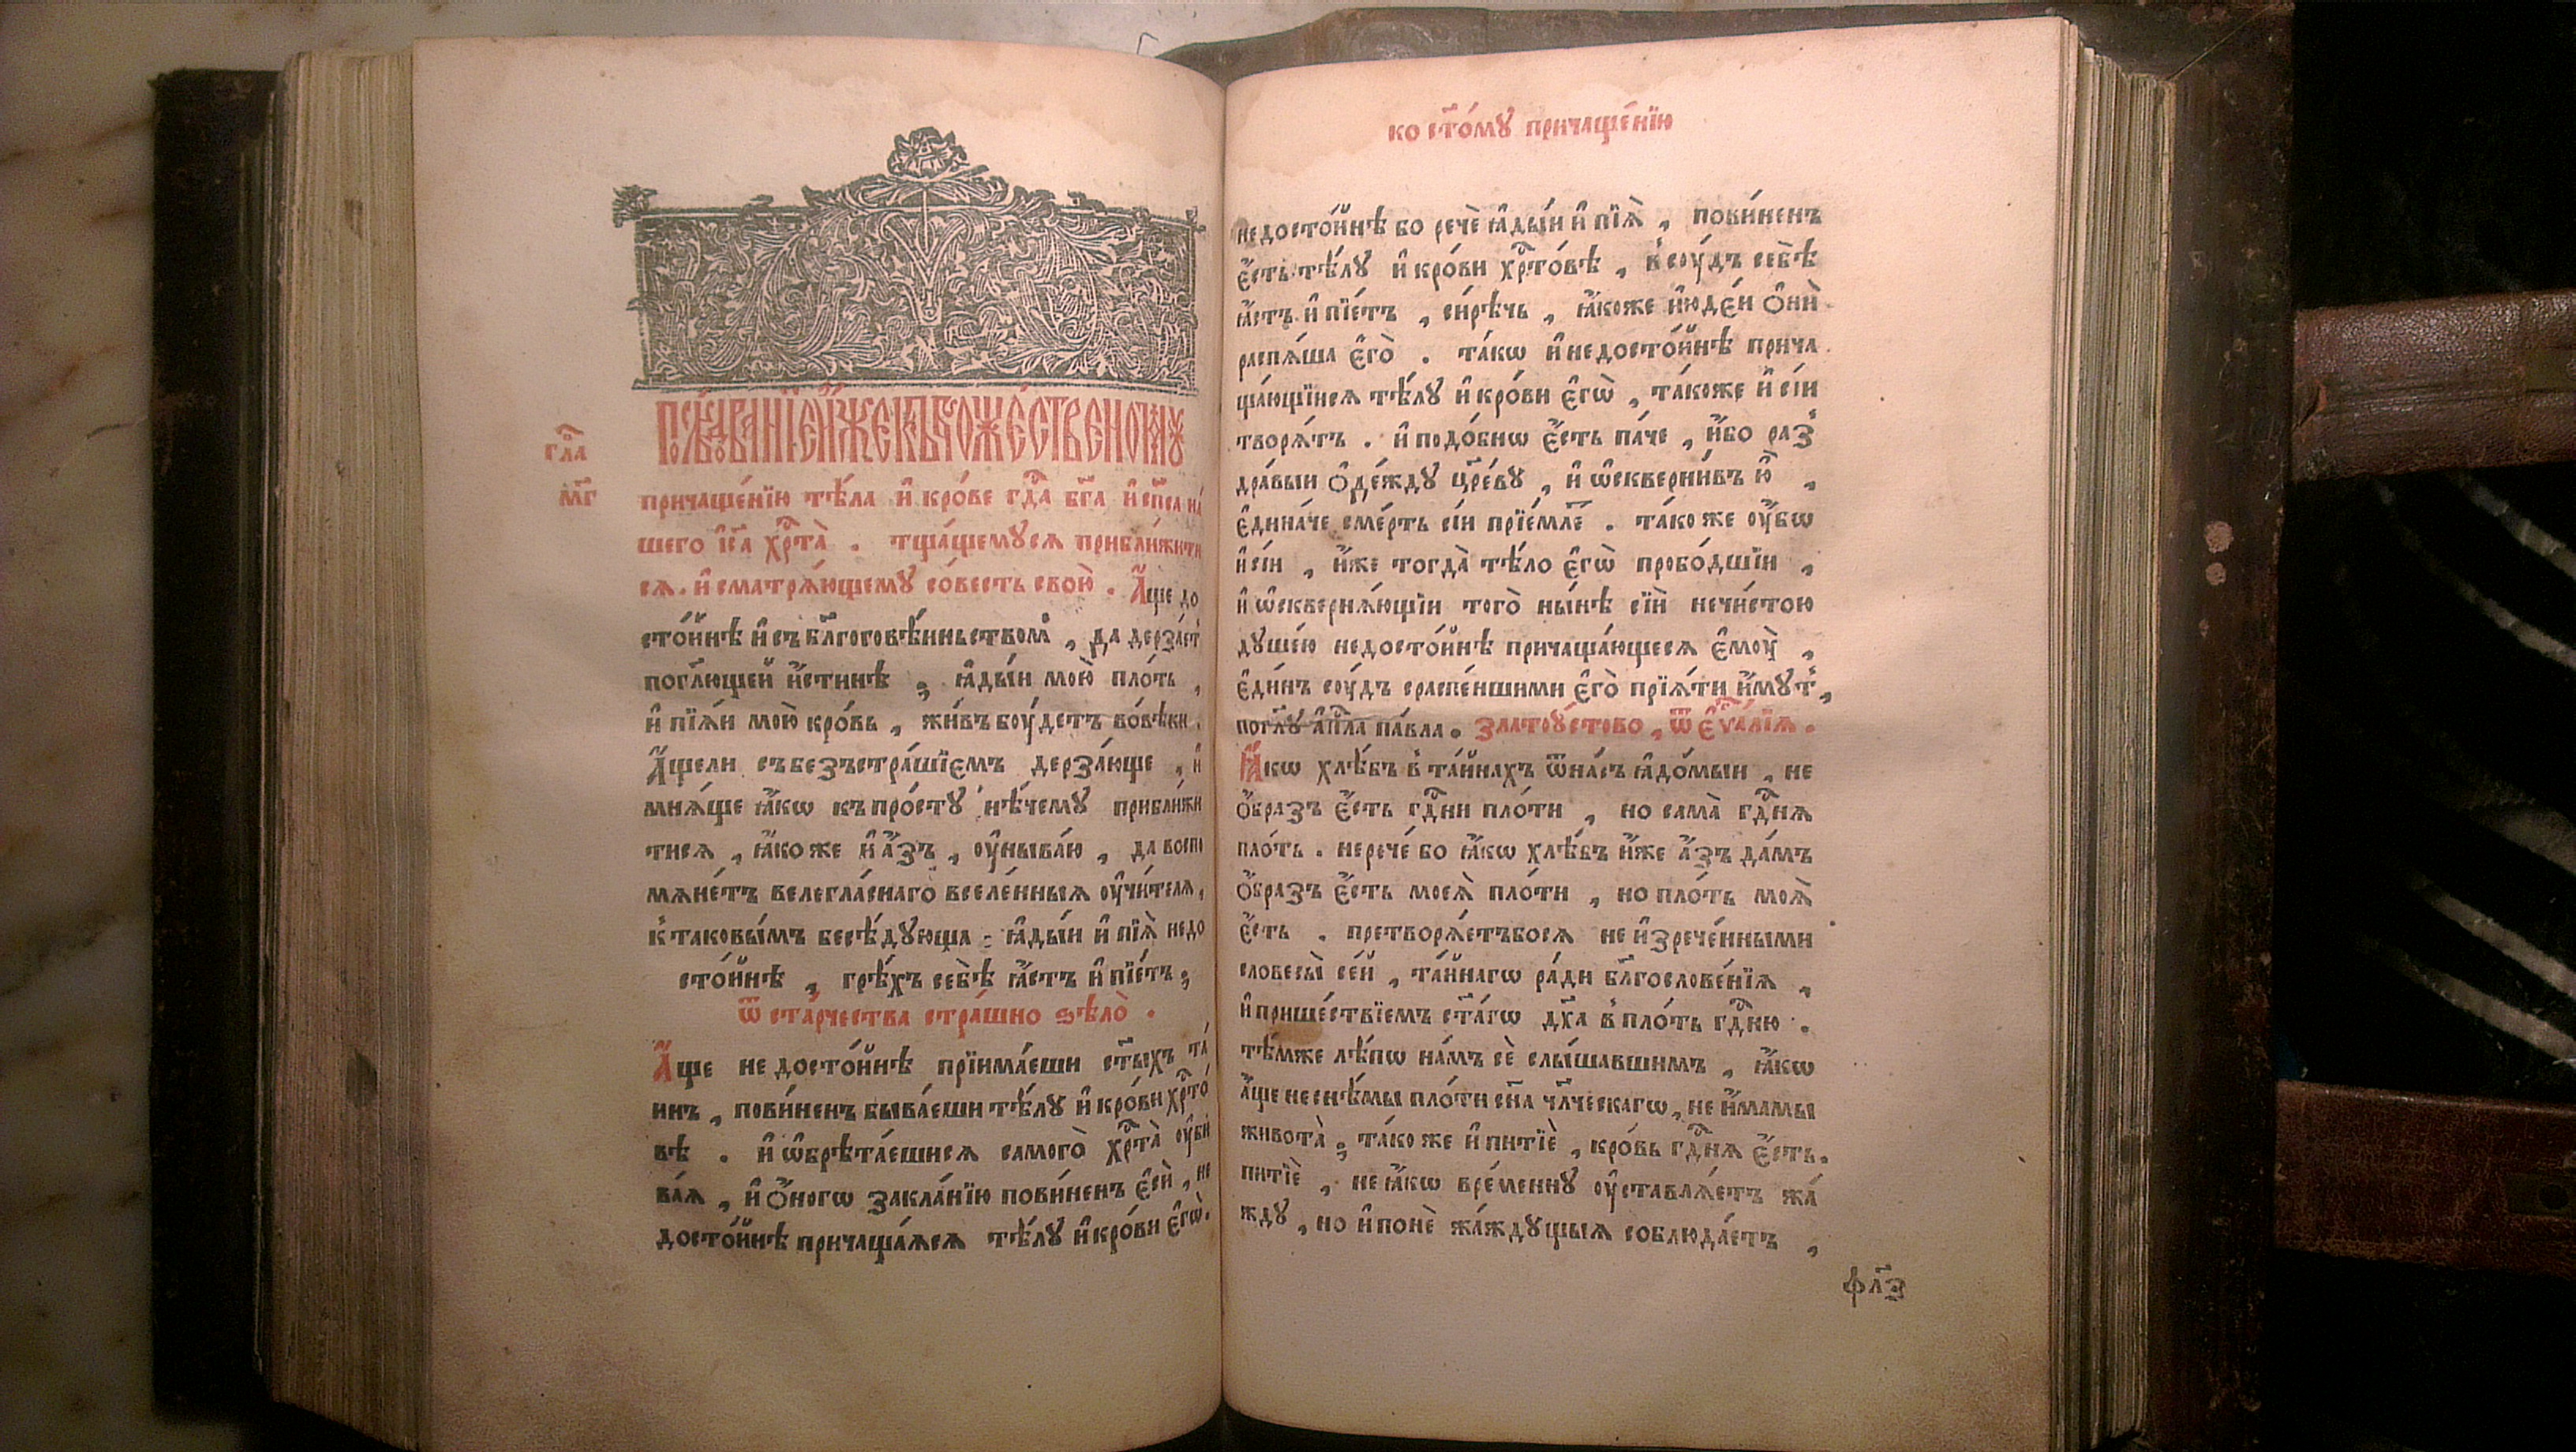 гла҃
мг҃
Послѣ́дованїе и҆́же къ бж҃е́ственомꙋ
причаще́нїю тѣ́ла и҆ кро́ве гдⷭ҇а бг҃а и҆ сп҃са на́
шего і҆с҃а хрⷭ҇та̀ . тща́щемꙋсѧ прибли́жити
сѧ . и҆ сматрѧ́ющемꙋ со́весть свою̀ . А҆́ще до
сто́йнѣ и҆ съ бл҃гоговѣ́иньством , да дерза́етъ
по гл҃ющей и҆́стинѣ ; ꙗ҆ды́и мою̀ пло́ть ,
и҆ пїѧ́и мою̀ кро́вь , жи́въ бꙋ́детъ во́вѣки .
А҆́щели съ безъстра́шїемъ дерза́юще , и҆
мнѧ́ще ꙗ҆́кѡ къ про́стꙋ нѣ́чемꙋ прибли́жи
тисѧ , ꙗ҆́коже и҆ а҆́зъ , оу҆ныва́ю , да воспо
мѧне́тъ велегла́снаго вселе́нныѧ оу҆чи́телѧ ,
к таковы́мъ бесѣ́дꙋюща : ꙗ҆ды́и и҆ пїѧ̀ недо
сто́йнѣ , грѣ́хъ себѣ̀ ꙗ҆́стъ и҆ пїе́тъ ;
Ѿ ста́рчества стра́шно ѕѣло̀ .
А҆́ще не досто́йнѣ прїима́еши ст҃ыхъ та́
инъ , пови́ненъ быва́еши тѣ́лꙋ и҆ кро́ви хрⷭ҇то́
вѣ . и҆ ѡ҆брѣта́ешисѧ самого̀ хрⷭ҇та̀ оу҆би
ва́ѧ , и҆ о҆́ногѡ закла́нїю пови́ненъ є҆сѝ , не
досто́йнѣ причаща́ѧсѧ тѣ́лꙋ и҆ кро́ви є҆гѡ̀ .
ко ст҃о́мꙋ причаще́нїю
недосто́йнѣ бо речѐ ꙗ҆ды́и и҆ пїѧ̀ , пови́ненъ
є҆́сть тѣ́лꙋ и҆ кро́ви хрⷭ҇то́вѣ , в соу́дъ себѣ̀
ꙗ҆́стъ и҆ пїе́тъ , си́рѣчь , ꙗ҆́коже и҆юде́и о҆нѝ
распѧ́ша є҆го̀ . та́кѡ и҆ недосто́йнѣ прича
ща́ющїисѧ тѣ́лꙋ и҆ кро́ви є҆гѡ̀ , та́коже и҆ сі́и
творѧ́тъ . и҆ подо́бнѡ є҆́сть па́че , и҆́бо раз
дра́выи о҆де́ждꙋ цр҃е́вꙋ , и҆ ѡ҆скверни́въ ю҆̀ ,
є҆дина́че сме́рть сі́и прїе́млє . та́коже оу҆́бѡ
и҆ сі́и , и҆́же тогда̀ тѣ́ло є҆гѡ̀ пробо́дшїи ,
и҆ ѡ҆сквернѧ́ющїи того̀ ны́нѣ сїѝ нечи́стою
дꙋше́ю недосто́йнѣ причаща́ющесѧ є҆моу̀ ,
є҆ди́нъ соу́дъ с распе́ншими є҆го̀ прїѧ́ти и҆́мꙋт ,
по гл҃ꙋ а҆пⷭ҇ла па́вла . Златоу́стово , ѿ є҆ѵⷢ҇а́лїѧ .
Ꙗ҆́кѡ хлѣ́бъ в та́йнахъ ѿ на́съ ꙗ҆до́мыи , не
о҆́бразъ є҆́сть гдⷭ҇ни пло́ти , но сама̀ гдⷭ҇нѧ
пло́ть . не рече́ бо ꙗ҆́кѡ хлѣ́бъ и҆́же а҆́зъ да́мъ
о҆́бразъ є҆́сть моеѧ̀ пло́ти , но пло́ть моѧ̀
є҆́сть . претворѧ́етъбосѧ не и҆зрече́нными
словесы̀ се́й , та́йнагѡ ра́ди бл҃гослове́нїѧ ,
и҆ прише́ствїемъ ст҃а́гѡ дх҃а в пло́ть гдⷭ҇ню .
тѣ́мже лѣ́пѡ на́мъ сѐ слы́шавшимъ , ꙗ҆́кѡ
а҆́ще не снѣ́мы пло́ти сн҃а чл҃ческагѡ , не и҆́мамы
живота̀ ; та́коже и҆ питїѐ , кро́вь гдⷭ҇нѧ є҆́сть .
питїѐ , не ꙗ҆́кѡ вре́меннꙋ оу҆ставлѧ́етъ жа́
ждꙋ , но и҆ понѐ жа́ждꙋщыѧ соблюда́етъ ,
фл҃з